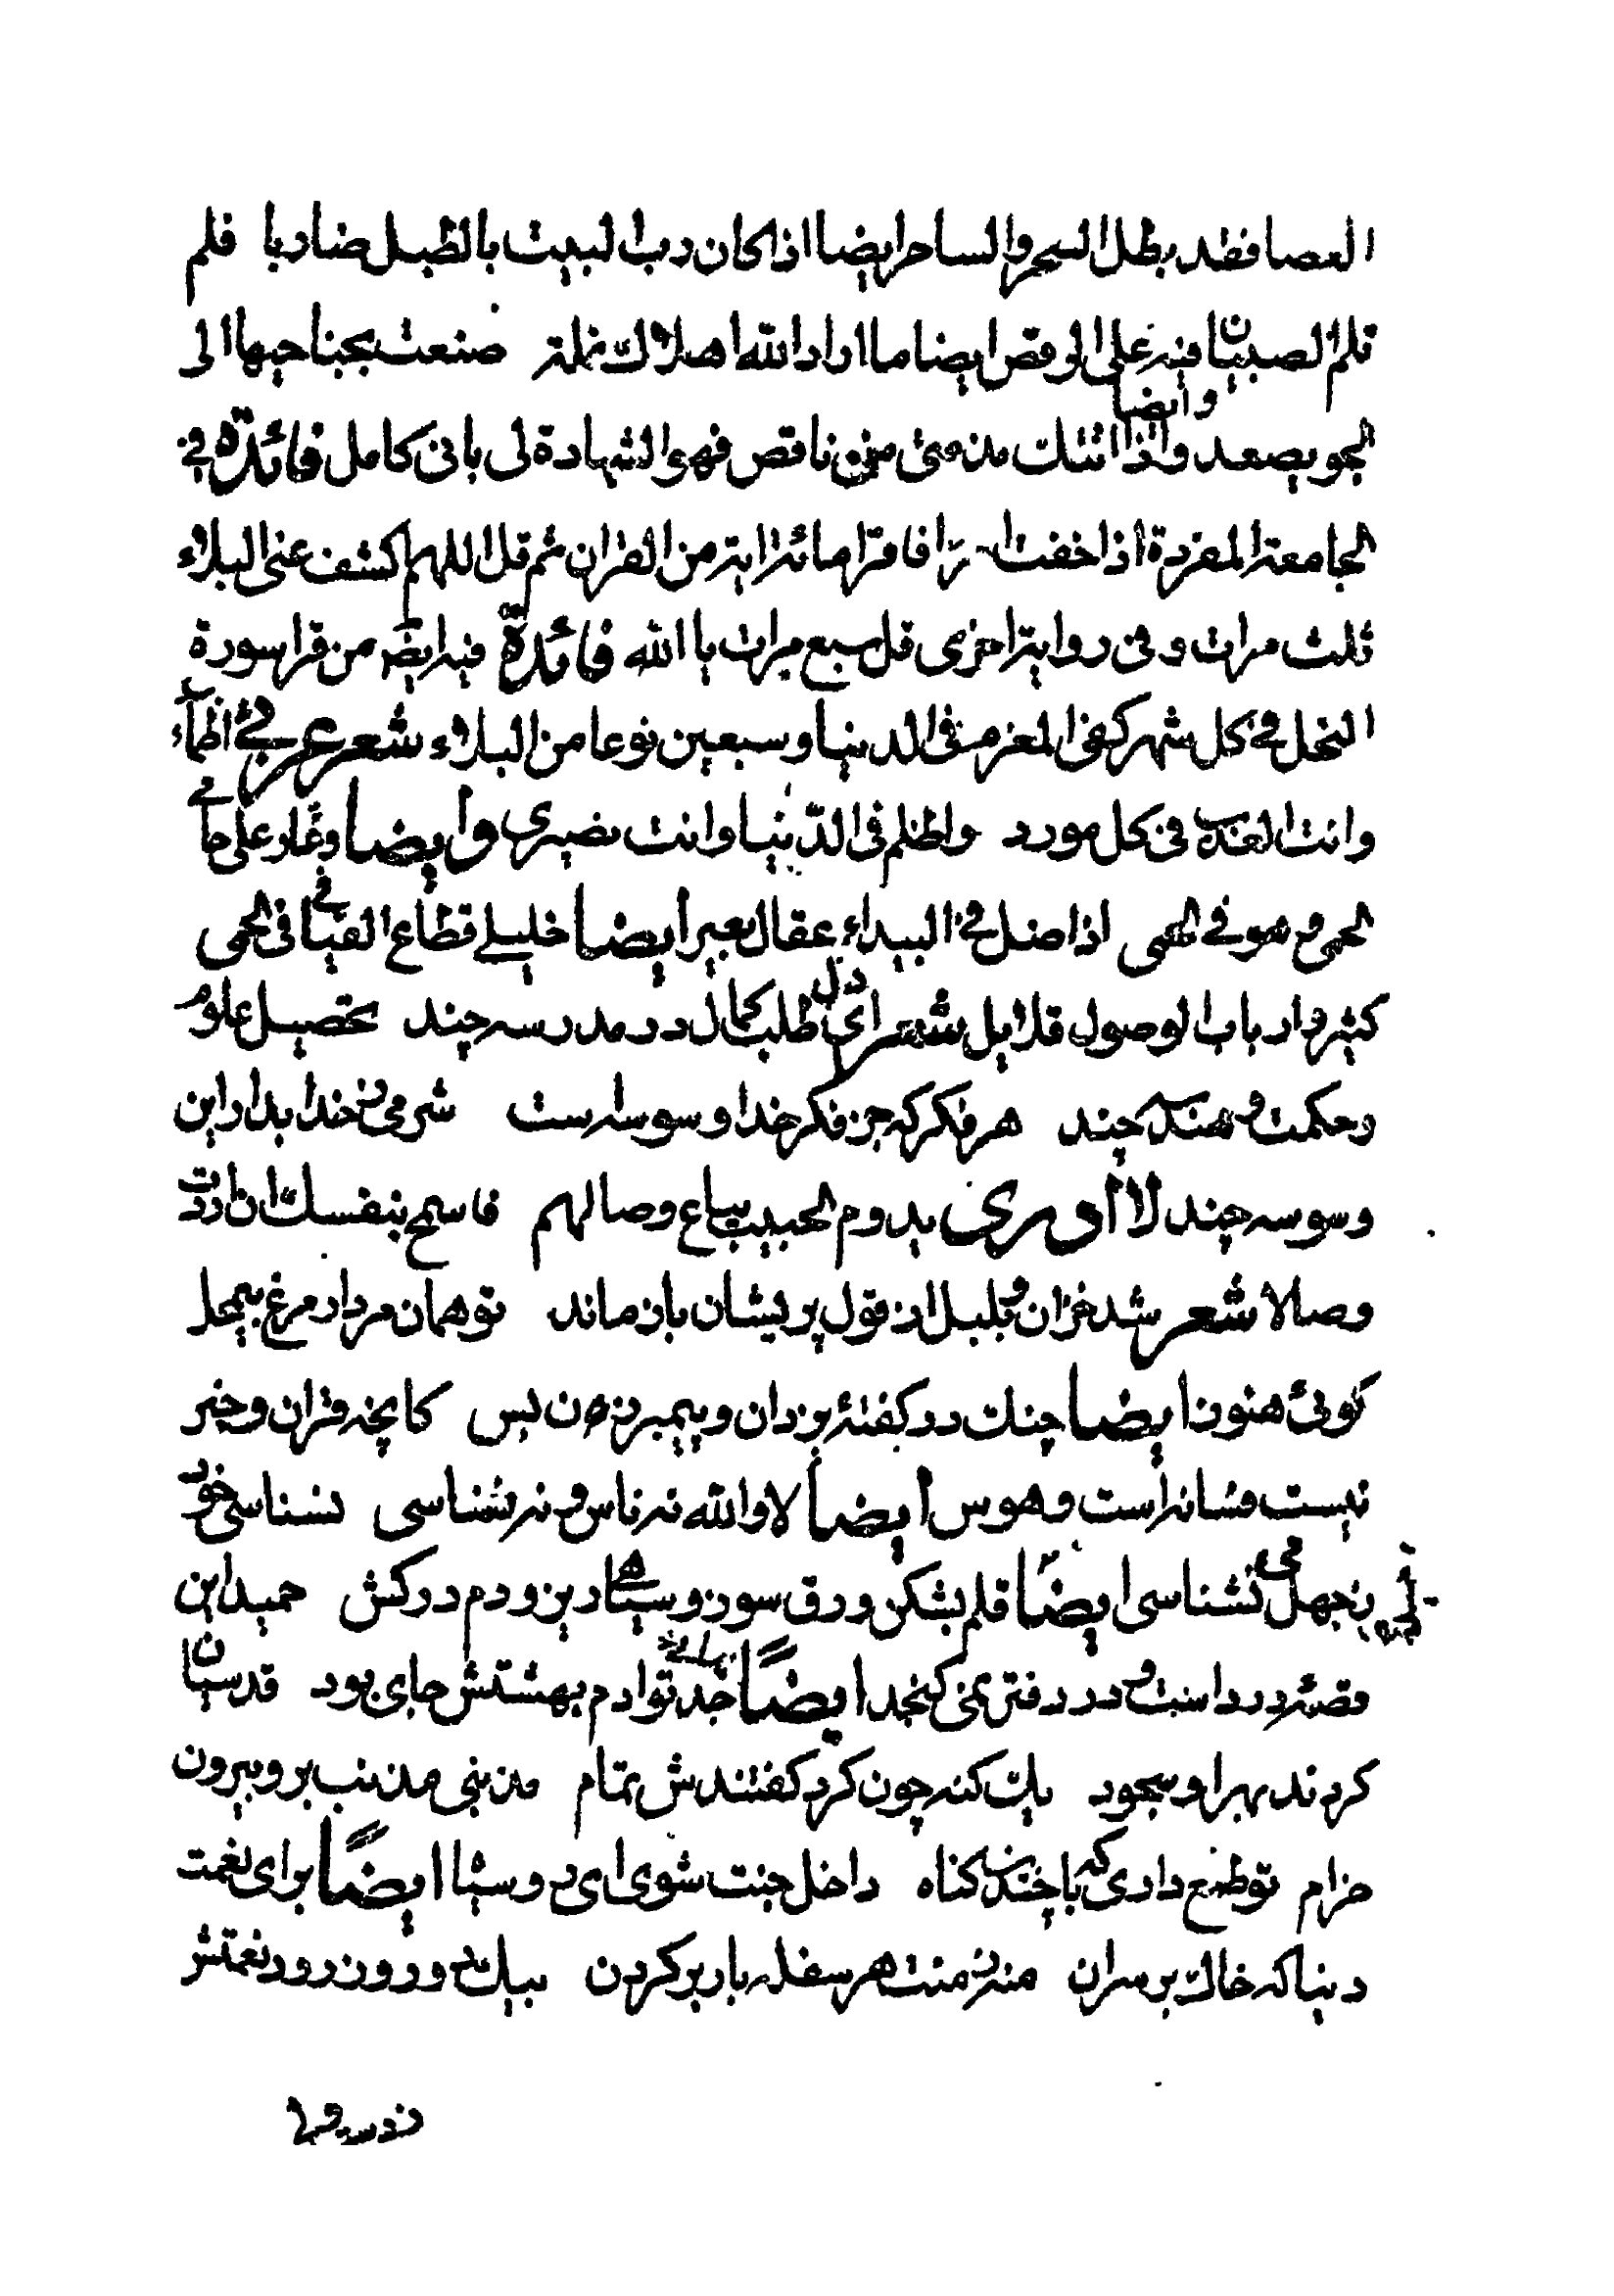 العصا فقد بطل السحر والساحر ايضا اذا كان رب البيت بالطبل ضاربا فلم
تلم الصبيان فيه على الرقص ايضا ما اراد الله اهلاك نملة صنعت بجناحيها الى
وايضا
الجو يصعد واذا اتتك مذمتى من ناقص فهو الشهادة لى بانى كامل فائدة فى
الجامعة المفردة اذا خفت امرا فاقرا مائة اية من القران ثم قل اللهم اكشف عنى البلاء
ثلث مرات و فى رواية اخرى قل سبع مرات يا الله فائدة فيه ايضا من قرا سورة
النحل فى كل شهر كفى المغرم فى الدنيا و سبعين نوعا من البلاء شعر عربى أظماء
وانت العذب فى كل مورد واظلم فى الدنيا وانت نصيرى وايضا وعار على حامى
الحمى وهو فى الحمى اذا ضل فى البيداء عقال بعير ايضا خليلى قطاع الفيافى فى الحمى
كثير وارباب الوصول قلايل شعر اى دل طلب كمال در مدرسه چند تحصيل علوم
وحكمت و هندسه چند هر فكر كه جز فكر خدا وسوسه است شرمى ز خدا بدار اين
وسوسه چند لا ادرى يدوم الحبيب يباع وصالهم فاسمح بنفسك ان اردت
وصالا شعر شد خزان و بلبل از قول پريشان باز ماند تو همان مردار مرغ بيمحل
گوئى هنوز ايضا چنك در گفتهٔ يزدان و پيمبر زن و بس كانچه قران و خبر
نيست فسانه است و هوس ايضا لا والله نه ناس و نه نشناسى نشناسى خود
ز جهل مى نشناسى ايضا قلم بشكن ورق سوز و سياهى ريز و دم در كش حميد اين
قصهٔ درد است و در دفتر نمى گنجد ايضاً جد تو ادم بهشتش جاى بود قدسيان
كردند بهر او سجود يك گنه چون كرد گفتندش تمام مذنبى مذنب برو بيرون
خرام تو طمع دارى كه با چندين گناه داخل جنت شوى اى رو سياه ايضاً براى نعمت
دنيا كه خاك بر سر ان منه ز منت هر سفله بار بر گردن بيك دو روز رود نعمتش